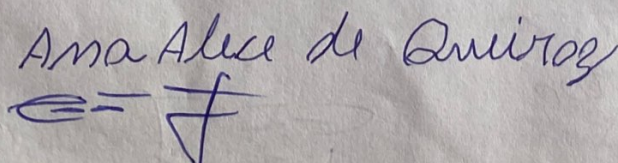 Ana Alice de Queiroz